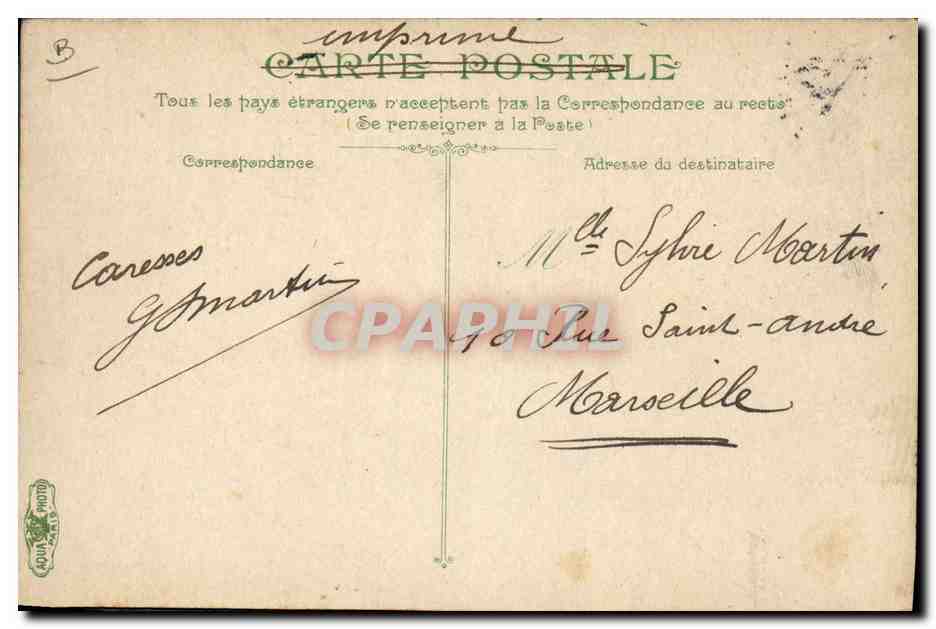 B
imprimé
CARTE POSTALE
Tous les pays étrangers n'acceptent pas la Correspondance au recto
(Se renseigner à la Poste)
Correspondance
Adresse du destinataire
Caresses
G Martin
Mlle Sylvie Martin
40 Rue Saint-André
Marseille
CPAPHIL
AQUA PHOTO
PARIS